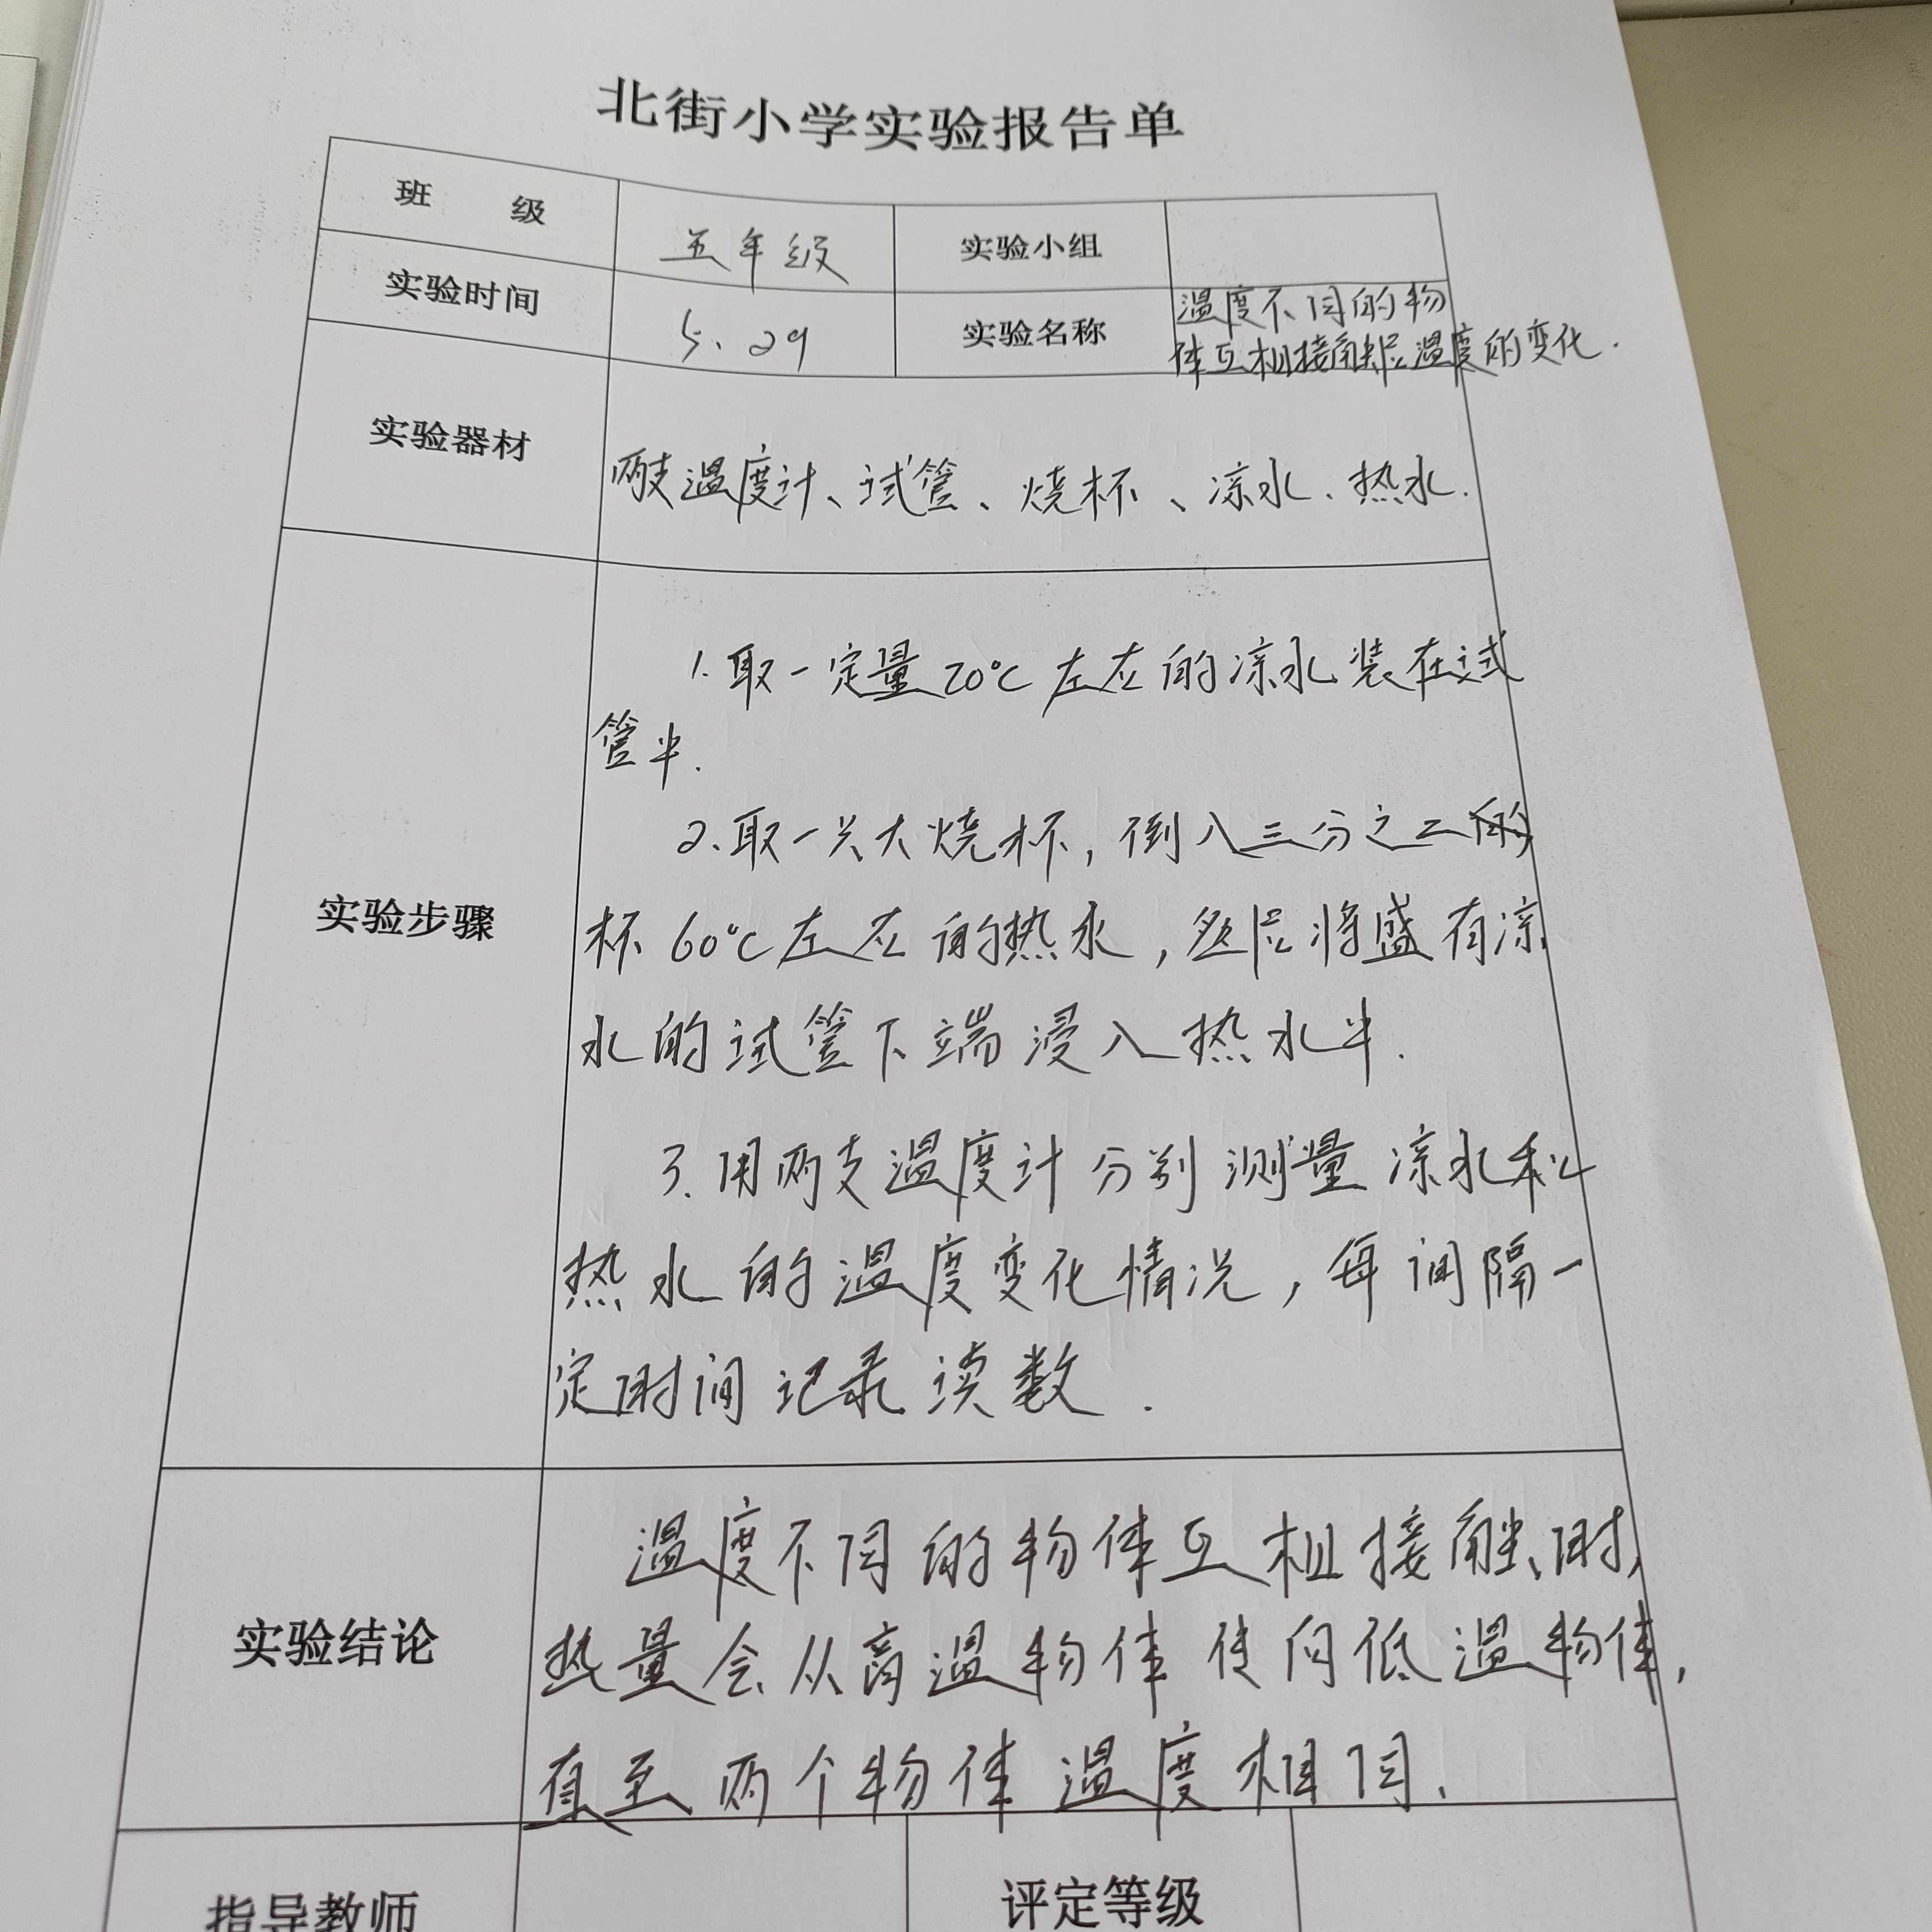 北街小学实验报告单
班 级 五年级 实验小组
实验时间 5.29 实验名称 温度不同的物
体互相接触后温度的变化.
实验器材 两支温度计、试管、烧杯、凉水、热水.
1.取一定量20℃左右的凉水装在试
管中.
2.取一只大烧杯，倒入三分之二的
实验步骤 杯60℃左右的热水，然后将盛有凉
水的试管下端浸入热水中.
3.用两支温度计分别测量凉水和
热水的温度变化情况，每间隔一
定时间记录读数.
温度不同的物体互相接触时，
实验结论 热量会从高温物体传向低温物体，
直至两个物体温度相同.
指导教师 评定等级